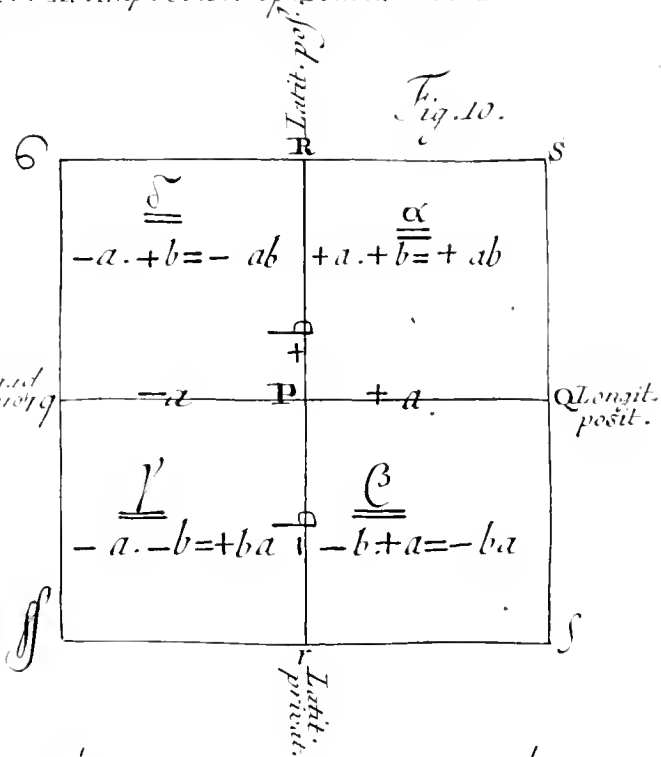 Latit. pos.
Fig. 10.
R
S
δ
α
-a. +b = - ab
+a. + b = + ab
b
+
-a
P
+ a.
q
Q Longit.
posit.
γ
β
- a. - b = + ba
- b. + a = - ba
b
-
r
s
Latit.
privat.